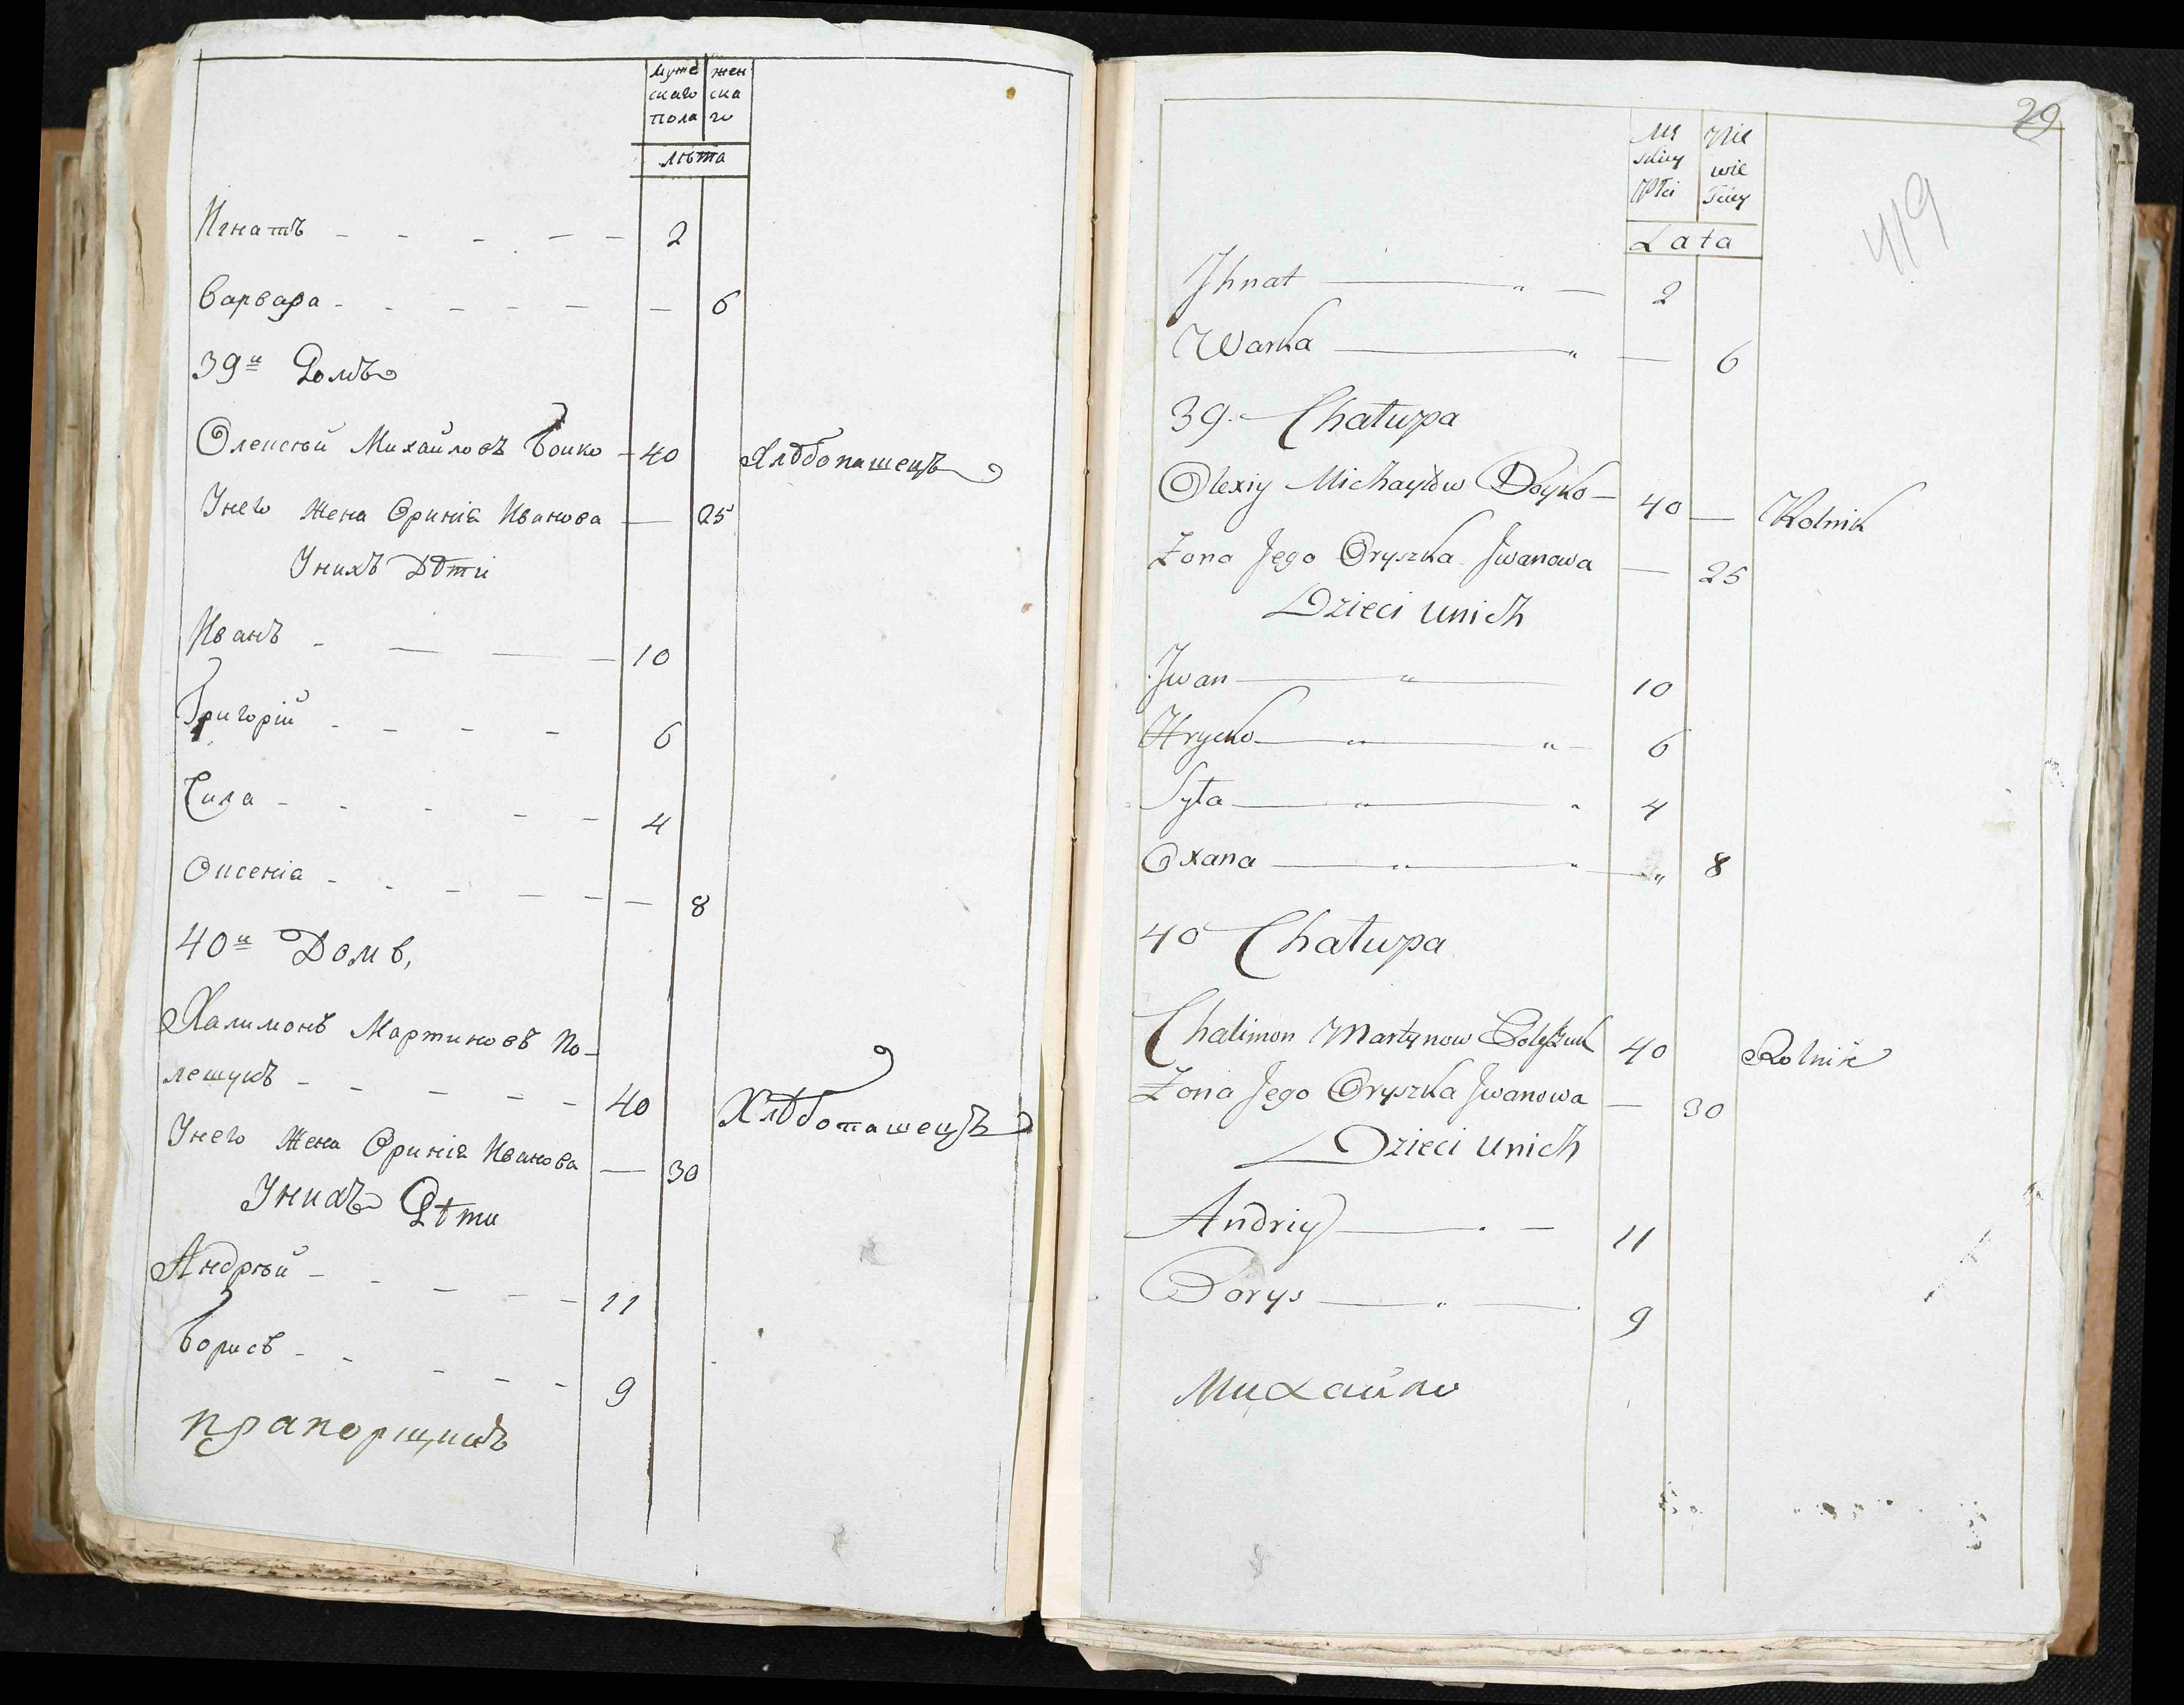 муже жен
скаго ска
пола го
лѣта
Игнатъ - - - - - 2
Варвара - - - - - - 6
39й Домъ
Олексѣй Михайловъ Бойко - 40 Хлѣбопашецъ
Унего Жена Ориніа Иванова — 25
Унихъ Дѣти
Иванъ - — — — 10
Григорій - - - - 6
Сила - - - - - 4
Оксеніа - - - - - - 8
40й Домъ,
Халимонъ Мартиновъ По-
лещукъ - - - - - 40 Хлѣбопашецъ
Унего Жена Ориніа Иванова — 30
Унихъ Дѣти
Андрѣй - - - - - 11
Борисъ - - - - - 9
прапорщикъ
29
419
Mę Nie
skiey wie
Płci sciey
Lata
Jhnat — " — 2
Warka — " — 6
39. Chałupa
Olexiy Michayłów Boyko — 40 — Rolnik
Żona Jego Oryszka Jwanowa — 25
Dzieci unich
Jwan — " — 10
Hrycko — " — " — 6
Syła — " — " 4
Oxana — " — " — " 8
40 Chałupa
Chalimon Martynow Poleszuk 40 Rolnik
Żona Jego Oryszka Jwanowa — 30
Dzieci unich
Andriy — . — 11
Borys — " — 9
Михайло